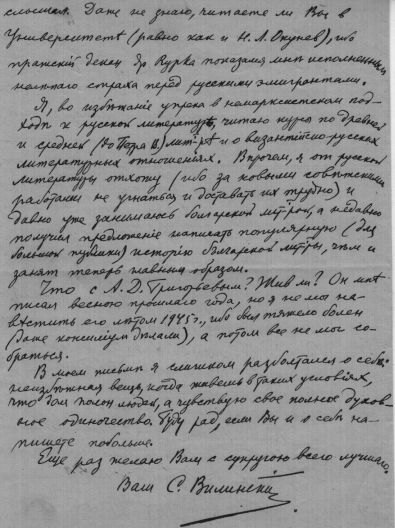 слышал. Даже не знаю, читаете ли Вы в
Университетѣ (равно как и Н. Л. Окунев), ибо
пражский декан др Курка показался мнѣ исполненным
немалого страха перед русскими эмигрантами.
Я, во избѣжание упрека в немарксистском под-
ходѣ к русской литературѣ, читаю курсы по древней
и средней (до Петра II) лит-рѣ и о византийско-русских
литературных отношениях. Впрочем, я от русской
литературы отхожу (ибо за новыми совѣтскими
работами не угнаться и доставать их трудно) и
давно уже занимаюсь болгарской лит-рой, а недавно
получил предложение написать популярную (для
большой публики) историю болгарской лит-ры, чѣм и
занят теперь главным образом.
Что с А. Д. Григорьевым? Жив ли? Он мнѣ
писал весною прошлаго года, но я не мог на-
вѣстить его лѣтом 1945 г., ибо был тяжело болен
(даже консилиум дѣлали), а потом все не мог со-
браться.
В моем письмѣ я слишком разболтался о себѣ:
неизбѣжная вещь, когда живешь в таких условиях,
что дом полон людей, а чувствую свое полное духов-
ное одиночество. Буду рад, если Вы и о себѣ на-
пишете побольше.
Еще раз желаю Вам с супругою всего лучшаго.
Ваш С. Вилинский